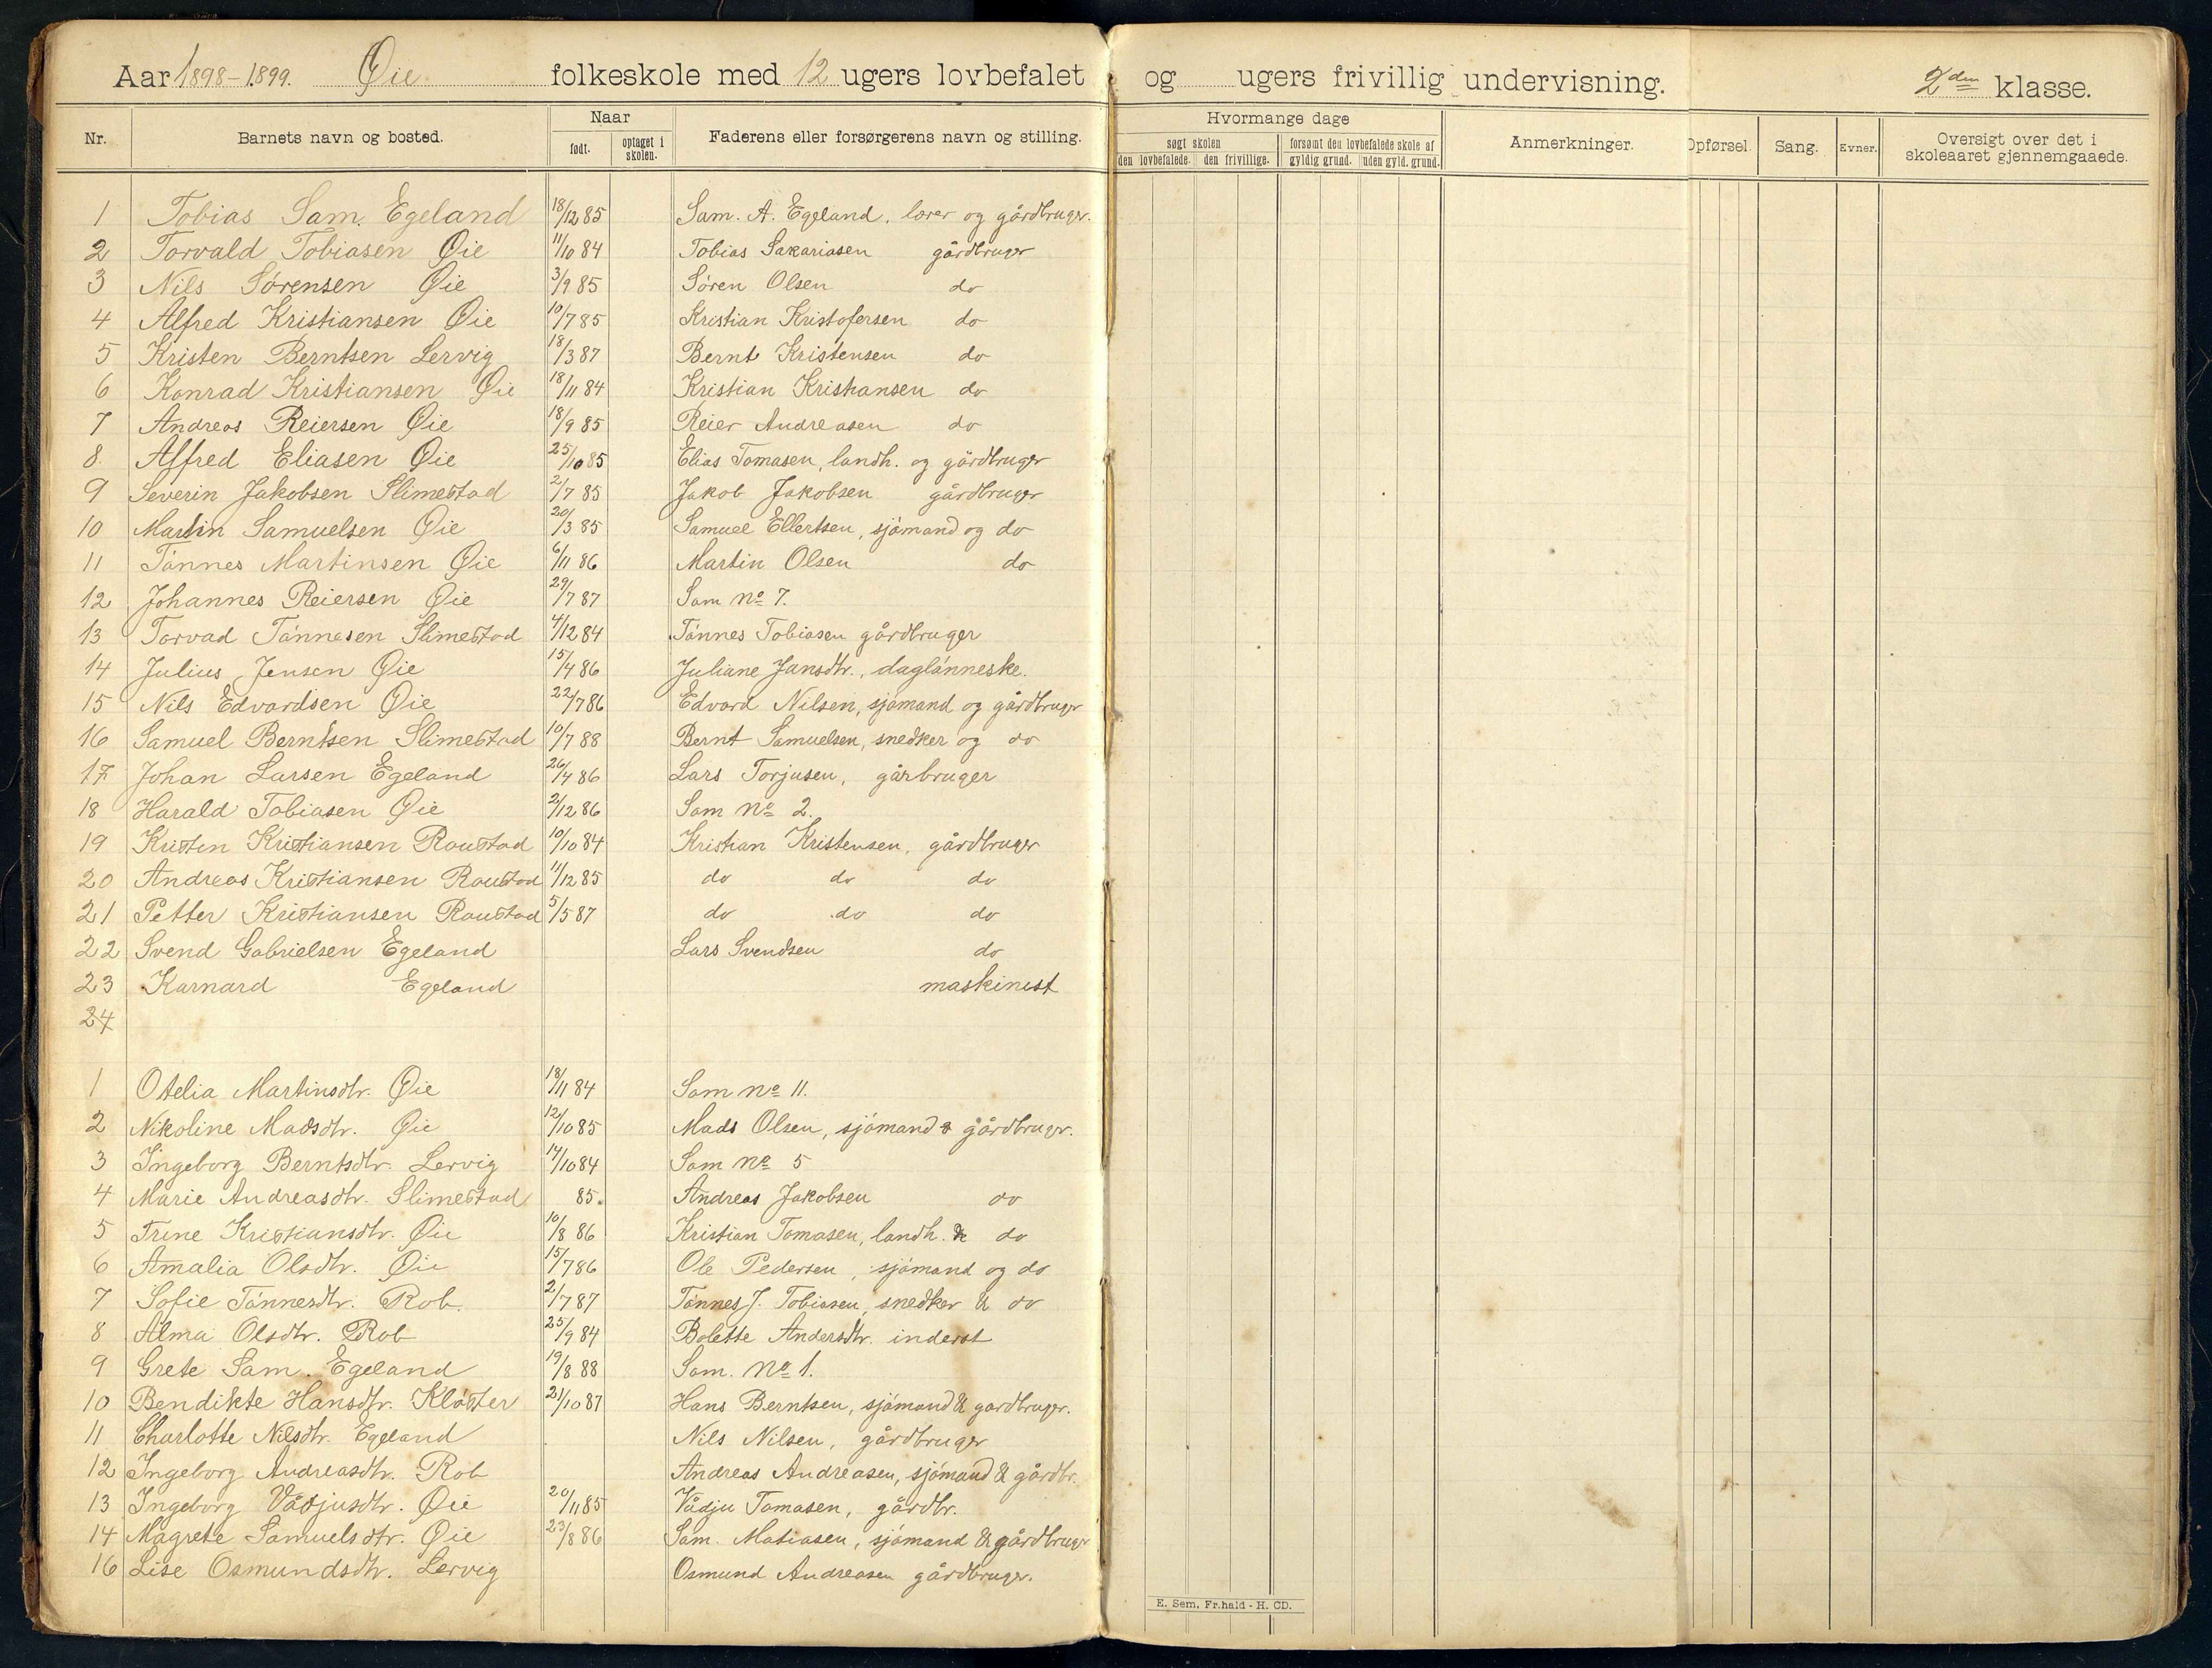 Aar 1898-1899. Øie folkeskole med 12 ugers lovbefalet og ugers frivillig undervisning. 2den klasse.
Nr. Barnets navn og bosted. Naar født. optaget i skolen. Faderens eller forsørgerens navn og stilling. Hvormange dage søgt skolen den lovbefalede. den frivillige. forsømt den lovbefalede skole af gyldig grund. uden gyld. grund. Anmerkninger. Opførsel. Sang. Evner. Oversigt over det i skoleaaret gjennemgaaede.
1 Tobias Sam. Egeland 18/12 85 Sam. A. Egeland, lærer og gårdbruger.
2 Torvald Tobiasen Øie 11/10 84 Tobias Sakariasen gårdbruger
3 Nils Sørensen Øie 3/9 85 Søren Olsen do
4 Alfred Kristiansen Øie 10/7 85 Kristian Kristofersen do
5 Kristen Berntsen Lervig 18/3 87 Bernt Kristensen do
6 Konrad Kristiansen Øie 18/11 84 Kristian Kristiansen do
7 Andreas Reiersen Øie 18/9 85 Reier Andreasen do
8. Alfred Eliasen Øie 25/10 85 Elias Tomasen, landh. og gårdbruger
9 Severin Jakobsen Slimestad 2/7 85 Jakob Jakobsen gårdbruger
10 Martin Samuelsen Øie 20/3 85 Samuel Ellertsen, sjømand og do
11 Tønnes Martinsen Øie 6/11 86 Martin Olsen do
12 Johannes Reiersen Øie 29/7 87 Som No 7.
13 Torvad Tønnesen Slimestad 4/12 84 Tønnes Tobiasen gårdbruger
14 Julius Jensen Øie 15/4 86 Juliane Jansdtr., daglønneske.
15 Nils Edvardsen Øie 22/7 86 Edvard Nilsen, sjømand og gårdbruger
16 Samuel Berntsen Slimestad 10/7 88 Bernt Samuelsen, snedker og do
17 Johan Larsen Egeland 26/4 86 Lars Torjusen, gårbruger
18 Harald Tobiasen Øie 2/12 86 Som No 2.
19 Kristen Kristiansen Roustad 10/10 84 Kristian Kristensen, gårdbruger
20 Andreas Kristiansen Roustad 11/12 85 do do do
21 Petter Kristiansen Roustad 5/5 87 do do do
22 Svend Gabrielsen Egeland Lars Svendsen do
23 Karnard Egeland maskinist
24
1 Otelia Martinsdtr. Øie 18/11 84 Som No 11.
2 Nikoline Madsdtr. Øie 12/10 85 Mads Olsen, sjømand & gårdbruger.
3 Ingeborg Berntsdtr. Lervig 14/10 84 Som No 5
4 Marie Andreasdtr. Slimestad 85. Andreas Jakobsen do
5 Trine Kristiansdtr. Øie 10/8 86 Kristian Tomasen, landh. & do
6 Amalia Olsdtr. Øie 15/7 86 Ole Pedersen, sjømand og do
7 Sofie Tønnesdtr. Rob. 2/7 87 Tønnes J. Tobiasen, snedker & do
8 Alma Olsdtr. Rob 25/9 84 Bolette Andersdtr. inderst
9 Grete Sam. Egeland 19/8 88 Som. No 1.
10 Bendikte Hansdtr. Kloster 21/10 87 Hans Berntsen, sjømand & gardbruger.
11 Charlotte Nilsdtr. Egeland Nils Nilsen, gårdbruger
12 Ingeborg Andreasdtr. Rob Andreas Andreasen, sjømand & gårdbr.
13 Ingeborg Vådjusdtr. Øie 20/11 85 Vådju Tomasen, gårdbr.
14 Magrete Samuelsdtr. Øie 23/8 86 Sam. Matiasen, sjømand & gårdbruger
16 Lise Osmundsdtr. Lervig Osmund Andreasen gårdbruger.
E. Sem, Fr.hald - H. CD.